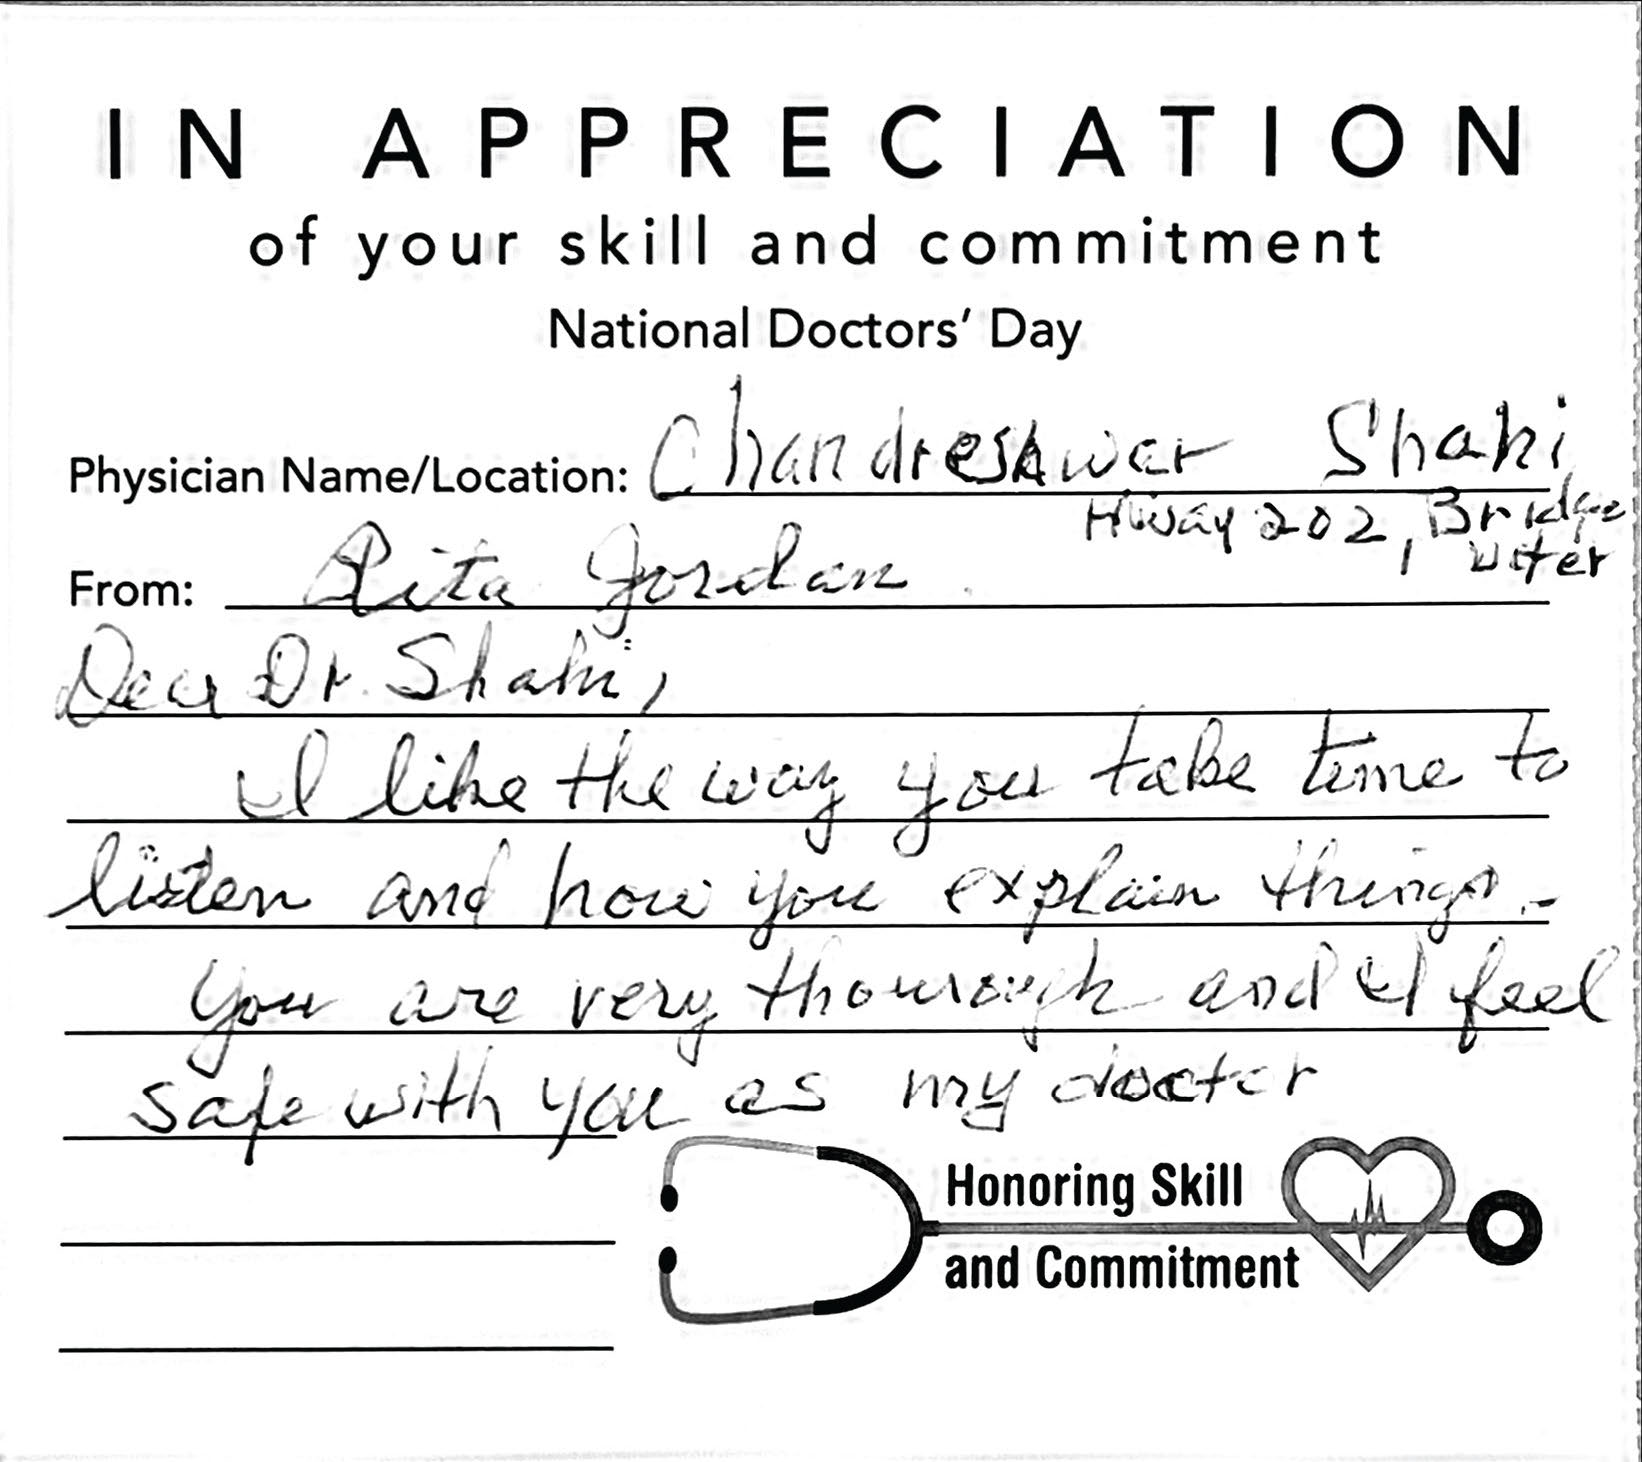 IN APPRECIATION
of your skill and commitment
National Doctors' Day
Physician Name/Location: Chandreshwar Shahi
Hiway 202, Bridge
water
From: Rita Jordan
Dear Dr. Shahi,
I like the way you take time to
listen and how you explain things.
You are very thourough and I feel
safe with you as my doctor
Honoring Skill
and Commitment